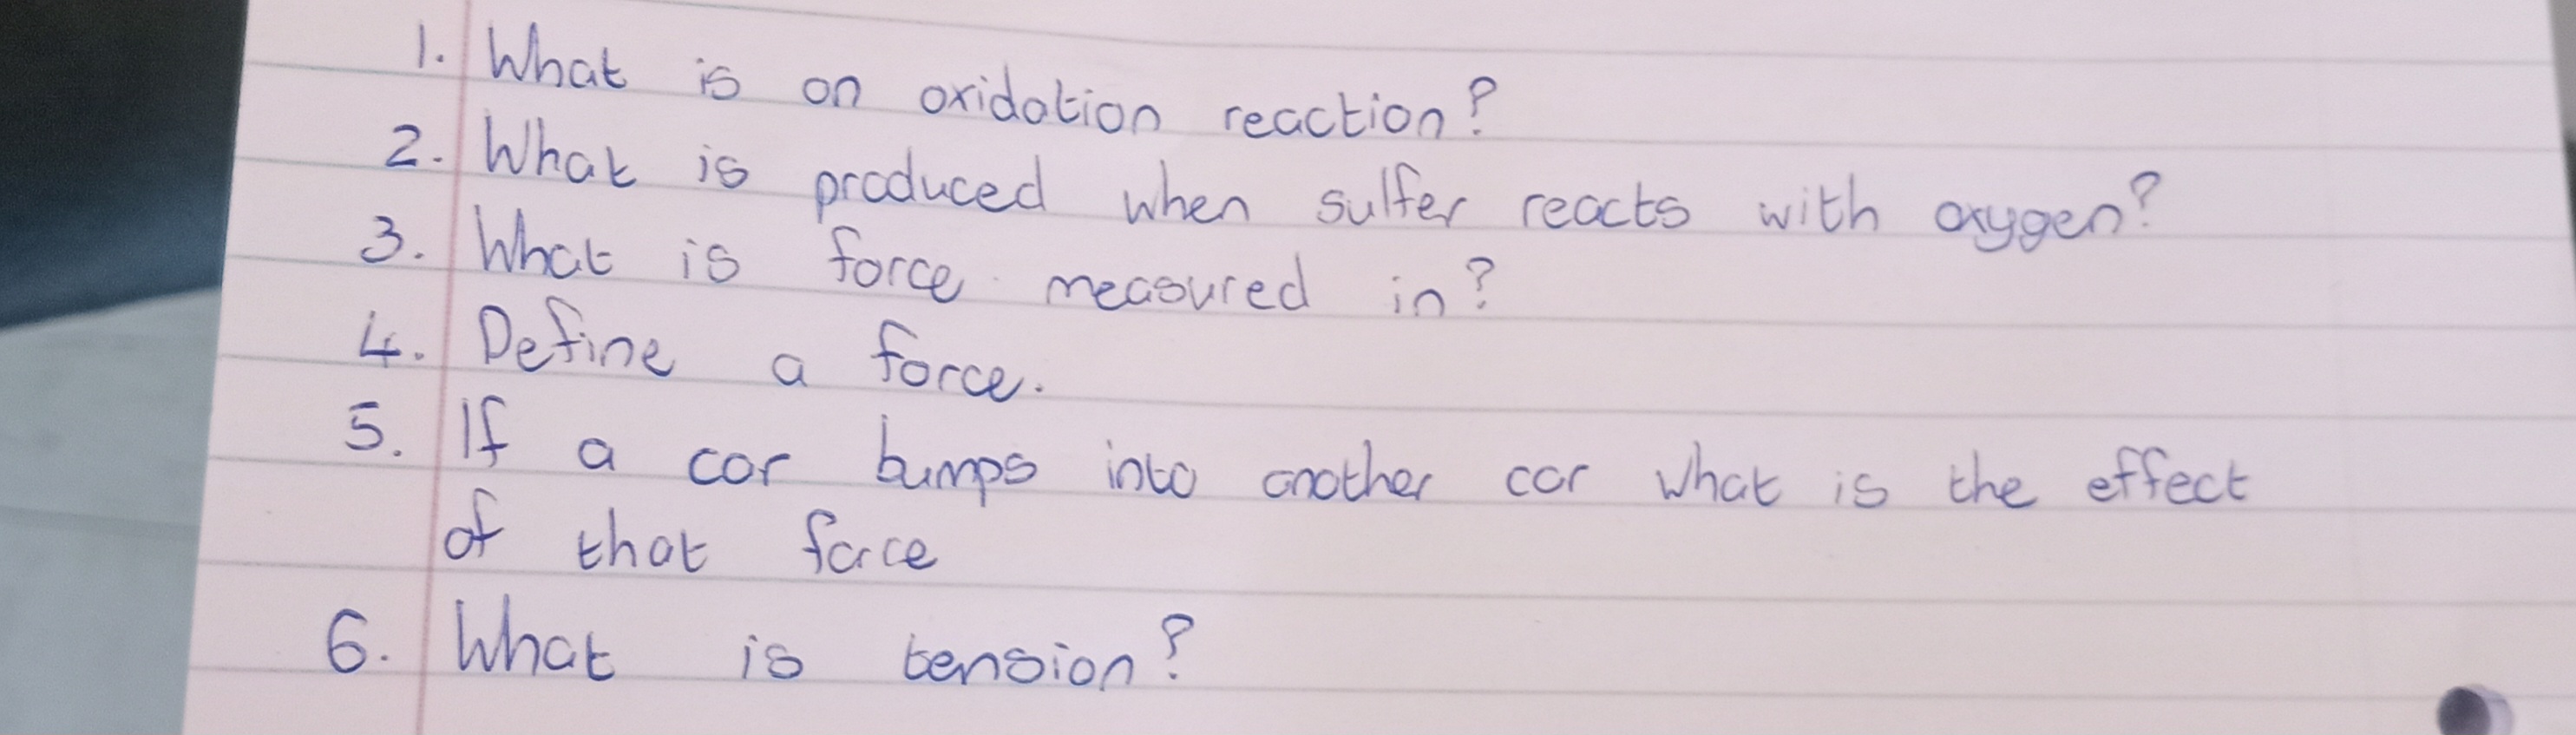 1. What is an oxidation reaction?
2. What is produced when sulfer reacts with oxygen?
3. What is force measured in?
4. Define a force.
5. If a car bumps into another car what is the effect
of that force
6. What is tension?